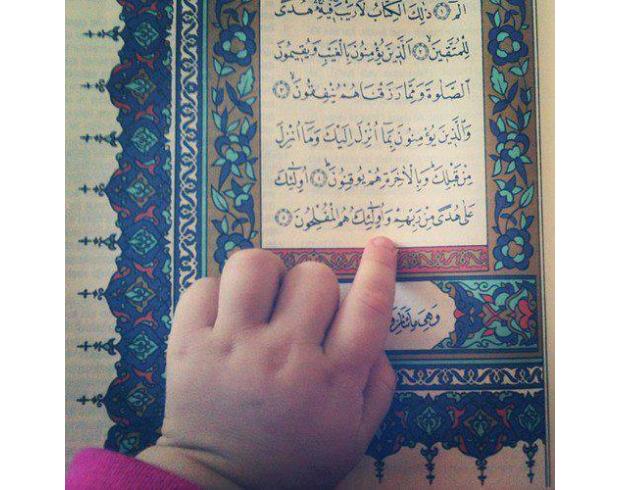 الٓمٓ ۝١ ذٰلِكَ الْكِتَابُ لَا رَيْبَ ۛ فِيهِ ۛ هُدًى
لِلْمُتَّقِينَ ۝٢ اَلَّذِينَ يُؤْمِنُونَ بِالْغَيْبِ وَيُقِيمُونَ
الصَّلٰوةَ وَمِمَّا رَزَقْنَاهُمْ يُنْفِقُونَ ۝٣
وَالَّذِينَ يُؤْمِنُونَ بِمَا اُنْزِلَ اِلَيْكَ وَمَا اُنْزِلَ
مِنْ قَبْلِكَ وَبِالْاٰخِرَةِ هُمْ يُوقِنُونَ ۝٤ اُولٰئِكَ
عَلٰى هُدًى مِنْ رَبِّهِمْ وَاُولٰئِكَ هُمُ الْمُفْلِحُونَ ۝٥
وَهِيَ مِائَتَانِ